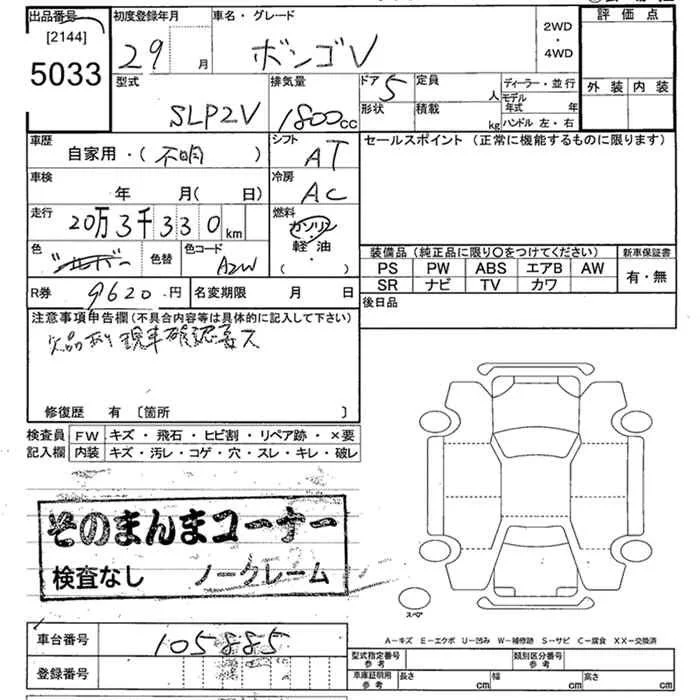 出品番号 初度登録年月 車名・グレード 評価点
[2144] 29 月 ボンゴV 2WD・4WD
5033 外装 内装
型式 排気量 ドア 定員 ディーラー・並行
SLP2V 1800cc 5 人 モデル年式 年
形状 積載 kg ハンドル 左・右
車歴 シフト セールスポイント (正常に機能するものに限ります)
自家用・( 不明 ) AT
車検 冷房
年 月( 日) AC
走行 燃料
20万3千330km ガソリン
軽油
・
( )
色 シルバー 色替 色コード A2W
装備品 (純正品に限り〇をつけてください) 新車保証書
PS PW ABS エアB AW 有・無
SR ナビ TV カワ
R券 9620円 名変期限 月 日 後日品
注意事項申告欄 (不具合内容等は具体的に記入して下さい)
欠品あり 現車確認要ス
修復歴 有 〔箇所 〕
検査員 FW キズ・飛石・ヒビ割・リペア跡・×要
記入欄 内装 キズ・汚レ・コゲ・穴・スレ・キレ・破レ
そのまんまコーナー
検査なし ノークレーム
スペア
車台番号 105885
A-キズ E-エクボ U-凹み W-補修跡 S-サビ C-腐食 XX-交換済
登録番号 型式指定番号 参考 類別区分番号 参考
車庫証明用 参考 長さ cm 幅 cm 高さ cm